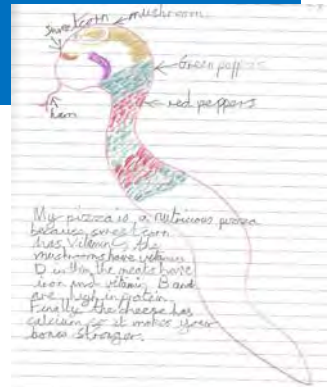 sweetcorn
mushroom
Green peppers
red peppers
ham
My pizza is a nutricious pizza
because sweetcorn
has Vitamin C the
mushrooms have vitamin
D in the meats have
iron and vitamin B and
are high in protein
Finally the cheese has
calcium so it makes your
bones stronger.